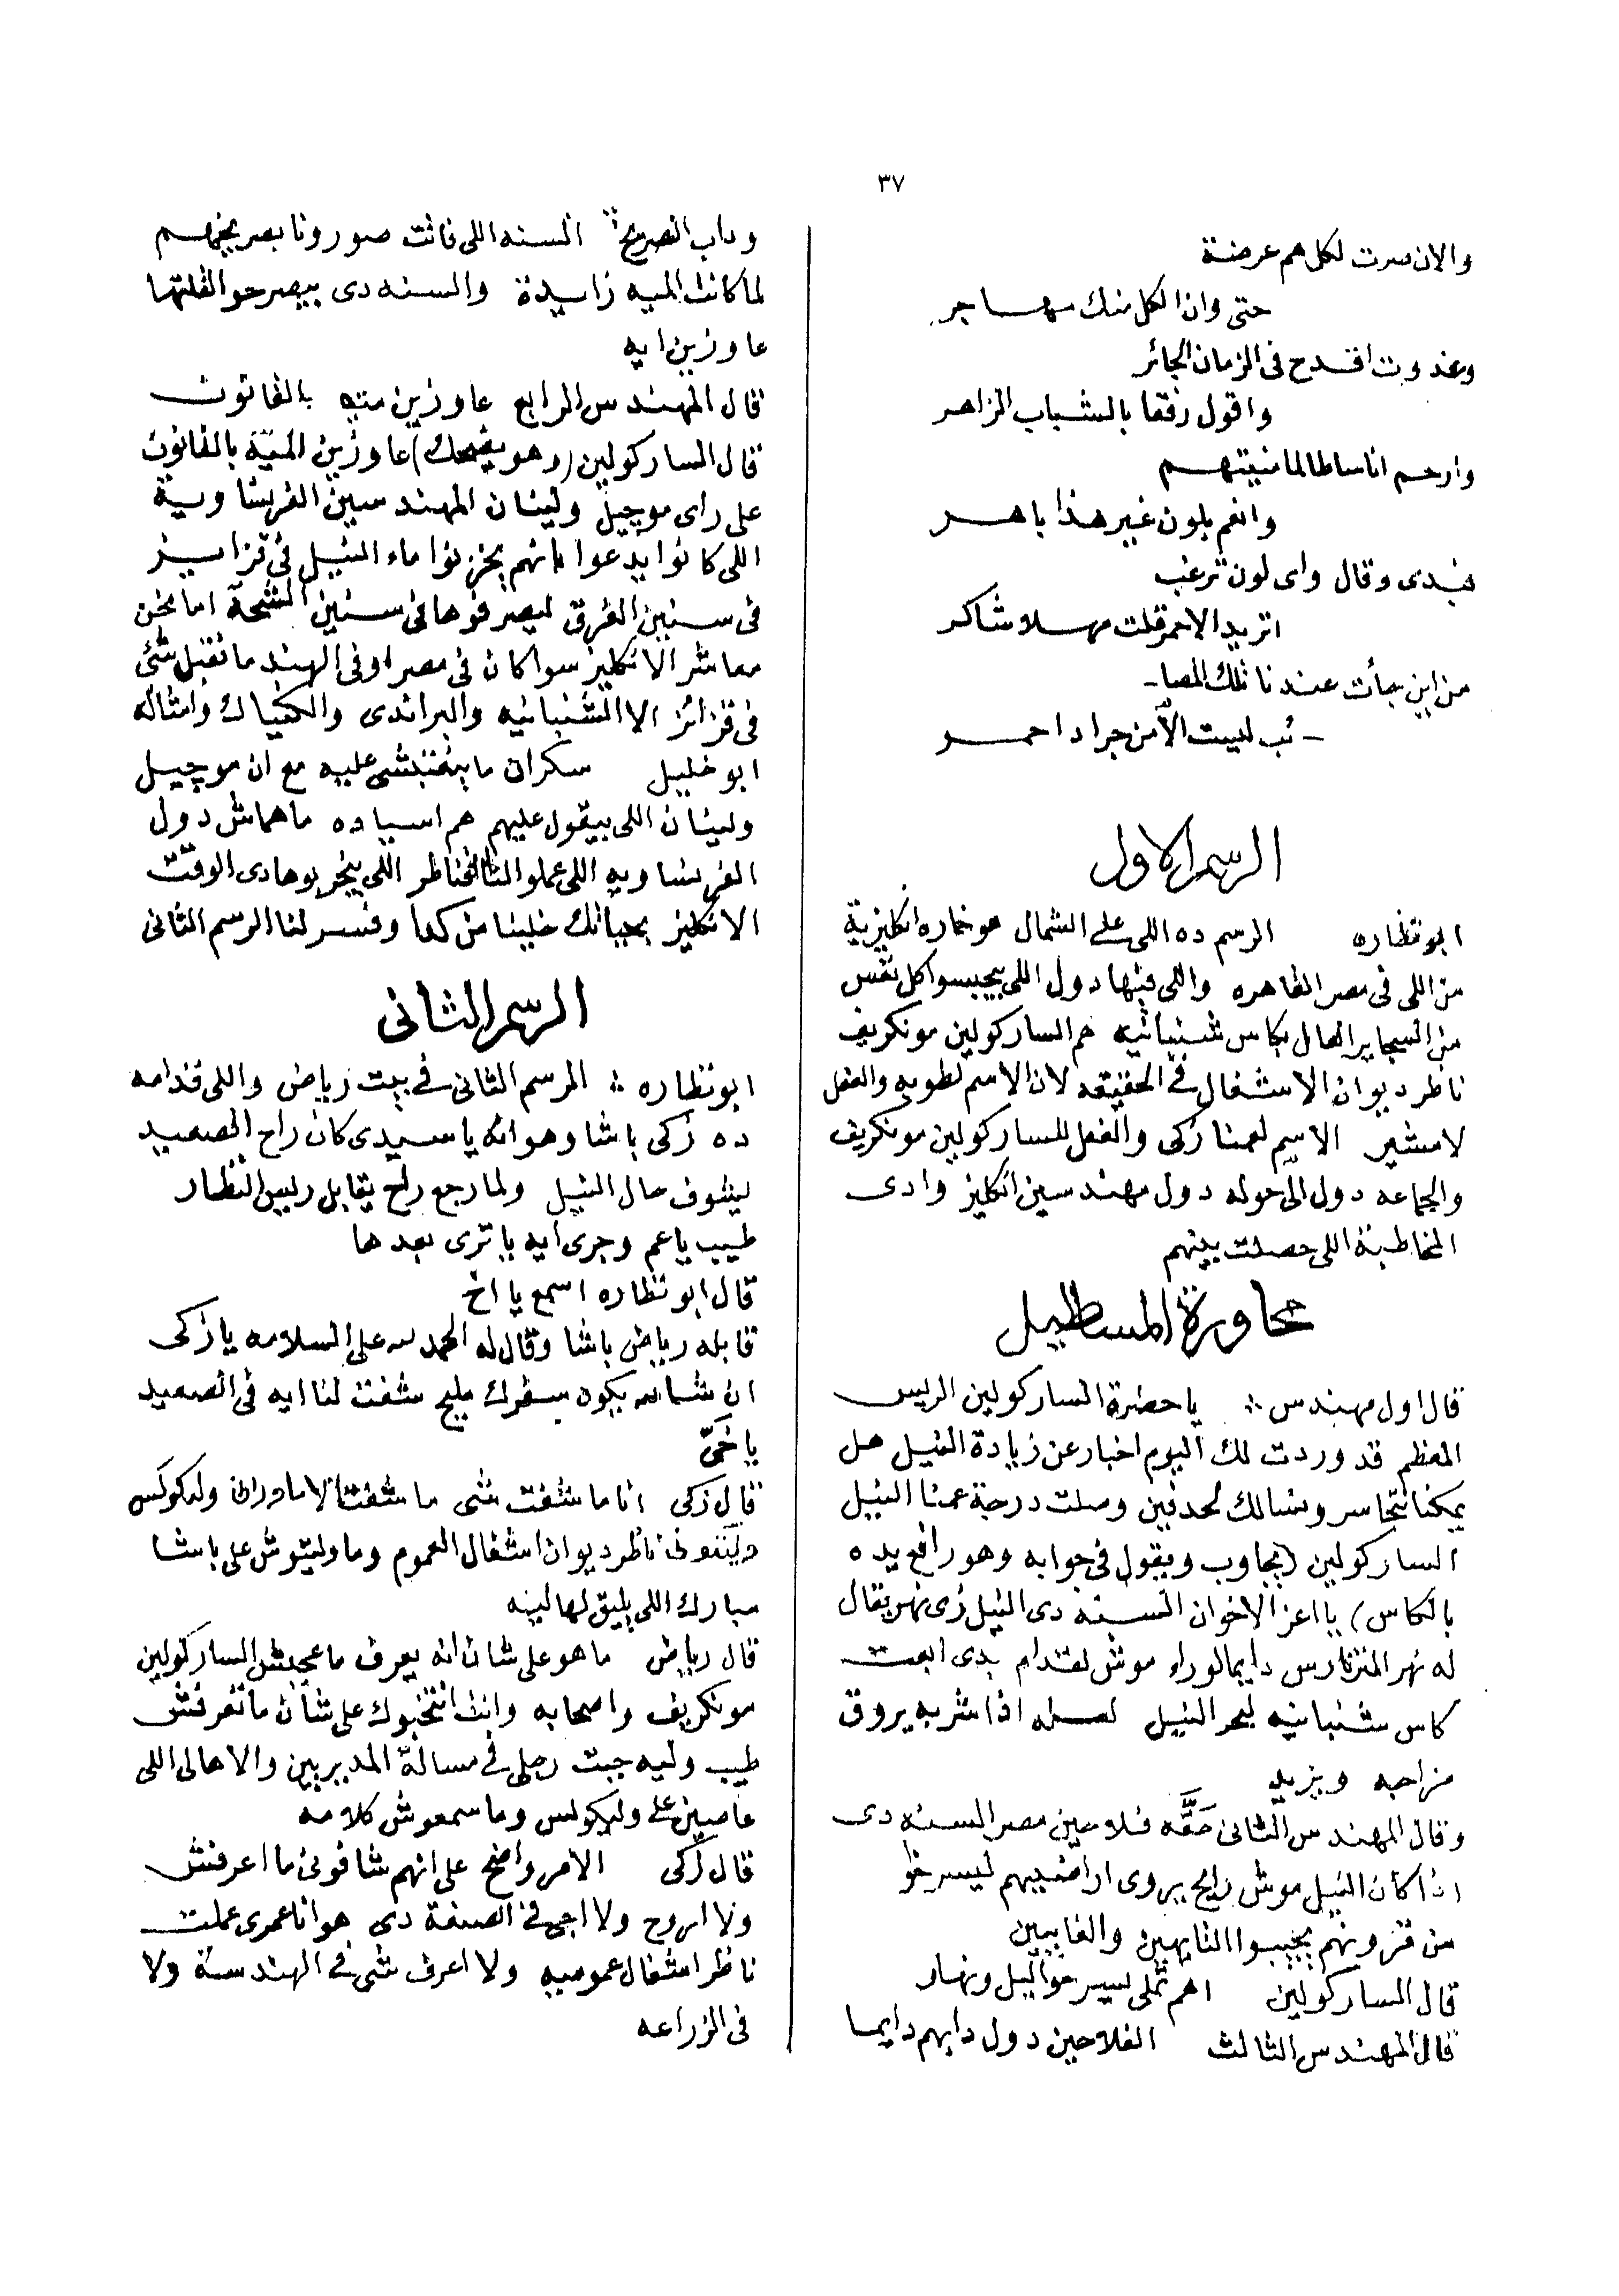 ٣٧
والان صرت لكل هم عرضة
حتى وان الكل منك مهاجر
وغدوت اقدح فى الزمان الجائر
واقول رفقا بالشباب الزاهر
وارحم اناسا طالما منيتهم
وانعم بلون غير هذا باهر
فبدى وقال واى لون ترغب
اتريد الاحمر قلت مهلا شاكر
من اين جأت عندنا تلك المصا-
-ئب لليت الآمن جراد احمر
الرسم الاول
ابو نظاره الرسم ده اللى على الشمال هو خماره انكليزية
من اللى فى مصر القاهره واللى فيها دول اللى بيحبسوا كل نفس
من السجاير الهال بكاس شنبانيه هم السار كولين مونكريف
ناظر ديوان الاشغال فى الحقيقه لان الاسم لطوبه والفعل
لامشير الاسم لعمنا زكى والفعل للسار كولين مونكريف
والجماعه دول الى حوله دول مهندسين انكليز وادى
المخاطبة اللى حصلت بينهم
محاورة المساطيل
قال اول مهندس ∴ يا حضرة السار كولين الريس
المعظم قد وردت لك اليوم اخبار عن زيادة النيل هل
يمكنا نتجاسر ونسالك لحد فين وصلت درجة عمنا النيل
السار كولين (يجاوب ويقول فى جوابه وهو رافع يده
بالكاس) يا اعز الاخوان السنه دى النيل زى نهر يقال
له نهر المتنارس دايما لوراء موش لقدام بدى ابعت
كاس شنبانيه لبحر النيل لعله اذا شربه يروق
مزاجه ويزيد
وقال المهندس الثانى حقّه فلاحين مصر السنه دى
اذا كان النيل موش رايح يروى اراضيهم ليسرخوا
من قزونهم يجيبوا التايهين والغايبين
قال السار كولين اهم تملى بيسرخوا ليل ونهار
قال المهندس الثالث الفلاحين دول دابهم دايما
وداب الصريخ السنه اللى فاتت صورونا بصريخهم
لما كانت الميه زايدة والسنه دى بيصرخوا لقلتها
عاوزين ايه
قال المهندس الرابع عاوزين ميه بالقانون
قال السار كولين (وهو يضحك) عاوزين الميّه بالقانون
على راى موجيل ولينان المهندسين الفرنساوية
اللى كانوا يدعوا بانهم يخزنوا ماء النيل فى قزايز
فى سنين الغرق ليصرفوها فى سنين الشحة اما نحن
معاشر الانكليز سوا كان فى مصر او فى الهند ما نقبل شئ
فى قزائز الا الشنبانيه والبراندى والكنياك وامثاله
ابو خليل سكران ما ينعتبشى عليه مع ان موجيل
ولينان اللى بيقول عليهم هم اسياده ما هماش دول
الفرنساويه اللى عملو النا القناطر اللى بيخربوها دى الوقت
الانكليز بحياتك خلينا من كدا وفسر لنا الرسم الثانى
الرسم الثانى
ابو نظاره ∴ الرسم الثانى فى بيت رياض واللى قدامه
ده زكى باشا وهو انه يا سيدى كان راح الصعيد
ليشوف حال النيل ولما رجع راح يقابل ريس النظار
طيب يا عم وجرى ايه يا ترى بعدها
قال ابو نظاره اسمع يا اخ
قابله رياض باشا وقال له الحمد لله على السلامه يا زكى
ان شا الله يكون سفرك مليح شفت لنا ايه فى الصعيد
يا خىّ
قال زكى انا ما شفت شى ما شفت الا مادران وليكوكس
وليه ناظر ديوان اشغال العموم وما وليتوش على باشا
مبارك اللى يليق لها ليه
قال رياض ما هو على شان انه يعرف ما عجبش السار كولين
مونكريف واصحابه وانت انتخبوك على شان ما تعرفش
طيب وليه جبت رجلى فى مسالة المديريين والاهالى اللى
عاصيين على وليكوكس وما سمعوش كلامه
قال زكى الامر واضح على انهم شافونى ما اعرفش
ولا اروح ولا اجى فى الصنعة دى هو انا عمرى عملت
ناظر اشغال عموميه ولا اعرف شى فى الهندسة ولا
فى الزراعه